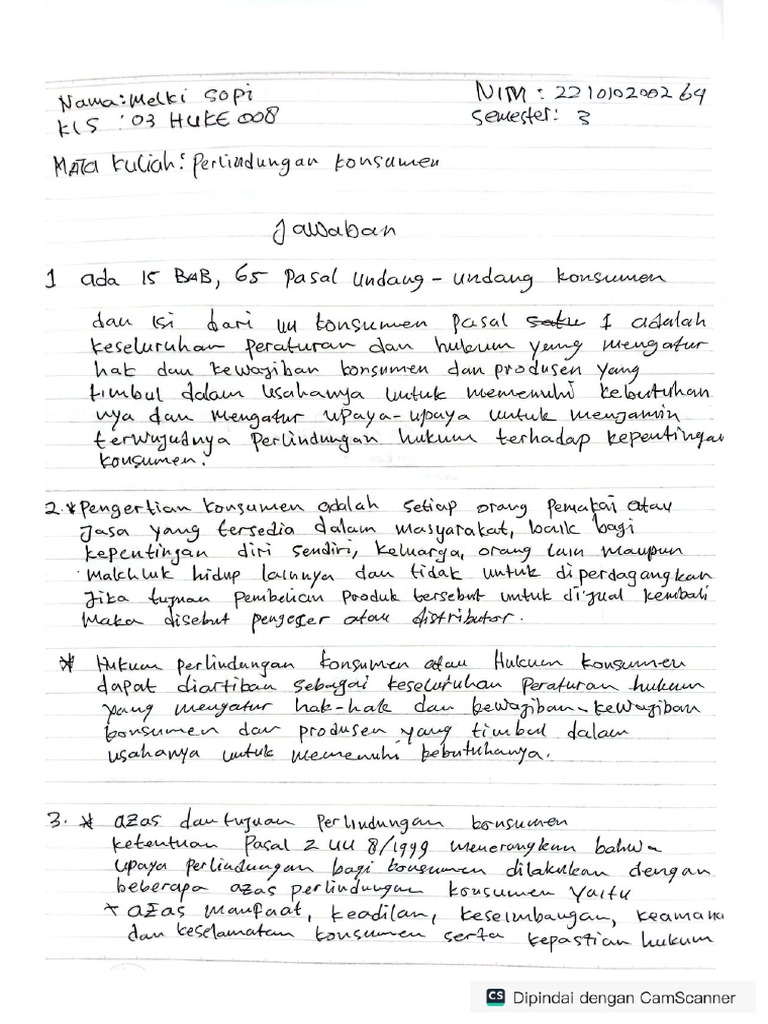 Nama: Melki Sopi
NIM : 2210102002 69
Kls : 03 HUKE 008
Semester: 3
Mata kuliah: Perlindungan konsumen
Jawaban
1 ada 15 BAB, 65 Pasal Undang-undang konsumen
dan isi dari uu konsumen pasal satu 1 adalah
keseluruhan peraturan dan hukum yang mengatur
hak dan kewajiban konsumen dan produsen yang
timbul dalam usahanya untuk memenuhi kebutuhan
nya dan mengatur upaya-upaya untuk menjamin
terwujudnya Perlindungan hukum terhadap kepentingan
konsumen.
2.* Pengertian konsumen adalah setiap orang pemakai atau
Jasa yang tersedia dalam masyarakat, baik bagi
kepentingan diri sendiri, keluarga, orang lain maupun
Makhluk hidup lainnya dan tidak untuk diperdagangkan
Jika tujuan pembelian produk tersebut untuk dijual kembali
Maka disebut pengecer atau distributor.
* Hukum perlindungan konsumen atau Hukum konsumen
dapat diartikan sebagai keseluruhan Peraturan hukum
yang mengatur hak-hak dan kewajiban-kewajiban
konsumen dan produsen yang timbul dalam
usahanya untuk memenuhi kebutuhanya.
3. * azas dan tujuan Perlindungan konsumen
ketentuan Pasal 2 UU 8/1999 menerangkan bahwa
upaya perlindungan bagi konsumen dilakukan dengan
beberapa azas perlindungan konsumen yaitu
* azas manfaat, keadilan, keseimbangan, keamana
dan keselamatan konsumen serta kepastian hukum
CS Dipindai dengan CamScanner